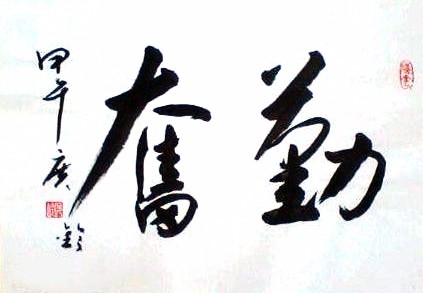 勤奮
甲午 廣